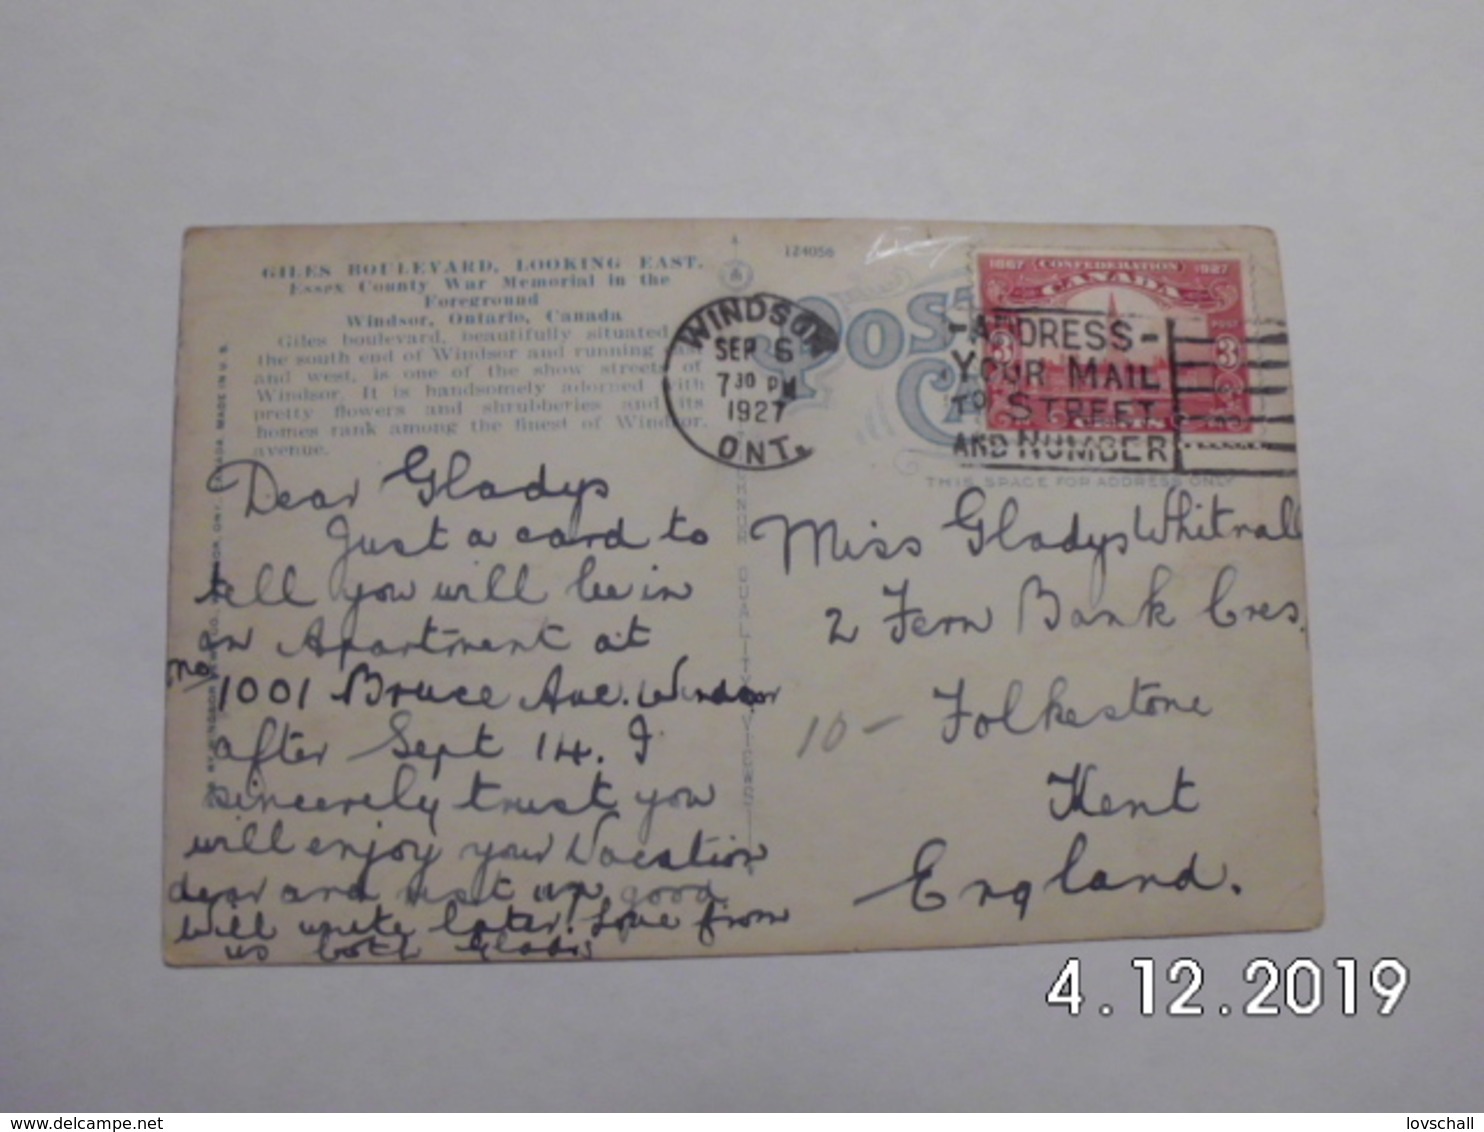 GILES BOULEVARD, LOOKING EAST.
Essex County War Memorial in the
Foreground
Windsor, Ontario, Canada
Giles boulevard, beautifully situated
the south end of Windsor and running
and west, is one of the show streets of
Windsor. It is handsomely adorned with
pretty flowers and shrubberies and its
homes rank among the finest of Windsor,
avenue.
4
124056
WINDSOR
SEP 6
7 30 PM
1927
ONT.
POST
1867 CONFEDERATION 1927
CANADA
POST
3 3
CENTS
-ADDRESS-
YOUR MAIL
TO STREET
AND NUMBER
THIS SPACE FOR ADDRESS ONLY
CANADA. MADE IN U. S.
QUALITY VIEWS
Dear Gladys
Just a card to
tell you will be in
an Apartment at
No 1001 Bruce Ave. Windsor
after Sept 14. I
sincerely trust you
will enjoy your Vacation
dear and rest up good
will write later. Love from
us both Gladys
Miss Gladys Whitnall
2 Fern Bank Cres.
10 - Folkestone
Kent
England.
4.12.2019
lovschall